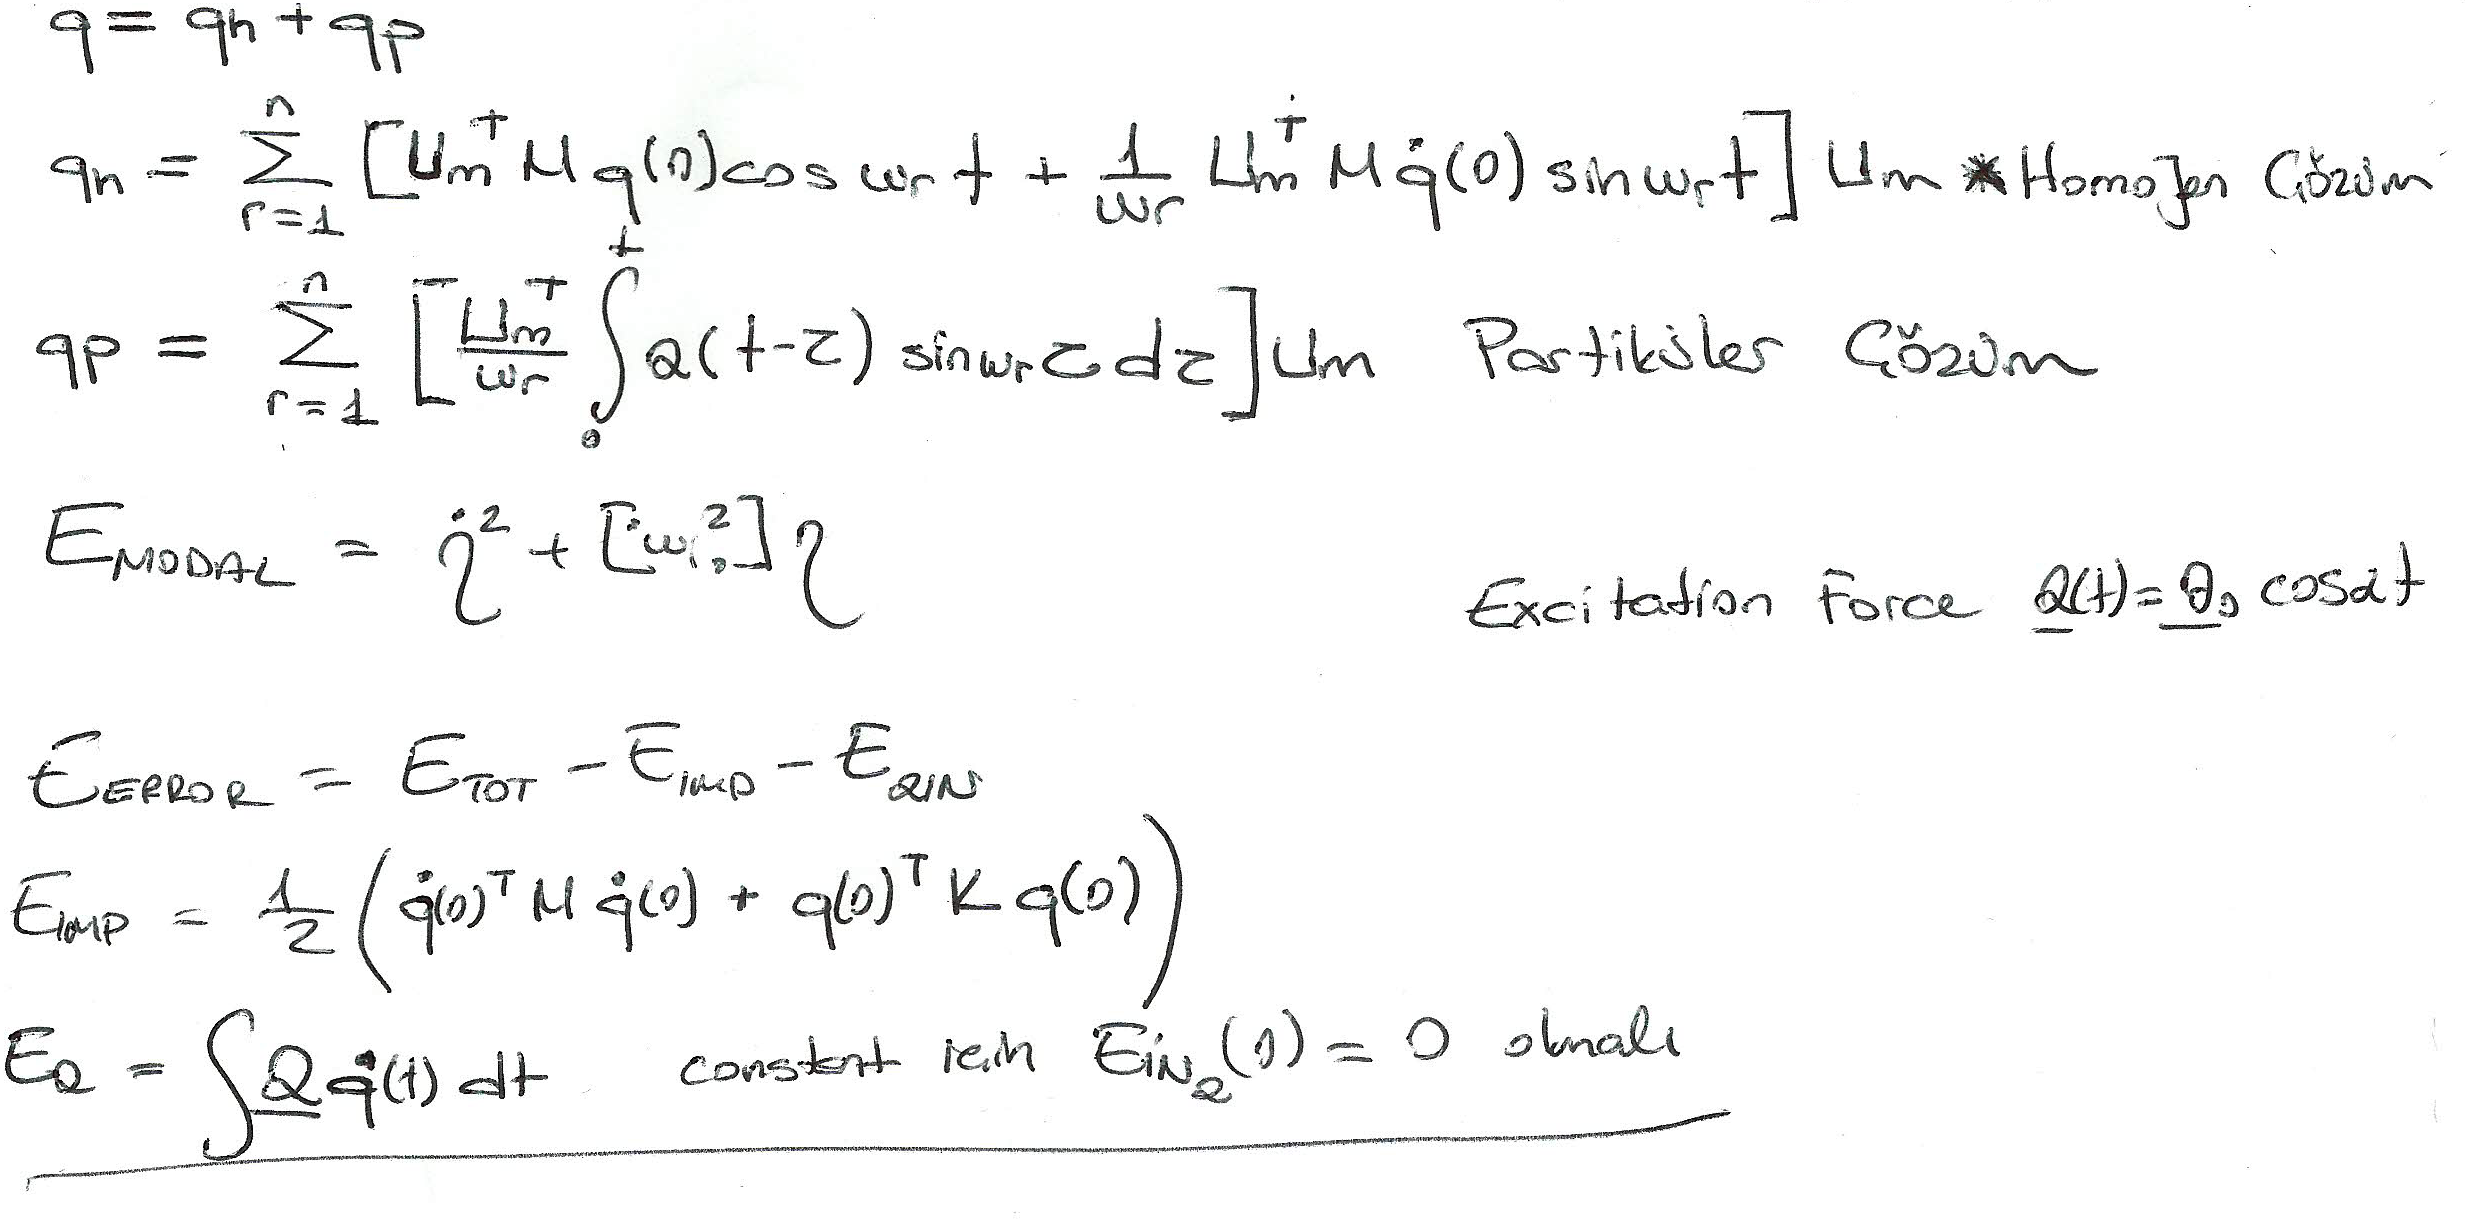 q = qh + qp
qh = Σ_{r=1}^{n} [Um^T M q(0) cos ωr t + 1/ωr Um^T M q̇(0) sin ωr t] Um * Homojen Çözüm
qp = Σ_{r=1}^{n} [Um^T/ωr ∫_0^t Q(t-τ) sin ωr τ dτ] Um Partiküler Çözüm
E_MODAL = η̇² + [ωr²] η
Excitation Force Q(t) = Q0 cos αt
E_ERROR = E_TOT - E_IMP - E_QIN
E_IMP = 1/2 (q̇(0)^T M q̇(0) + q(0)^T K q(0))
E_Q = ∫ Q q̇(t) dt constant için Ein_Q(0) = 0 olmalı